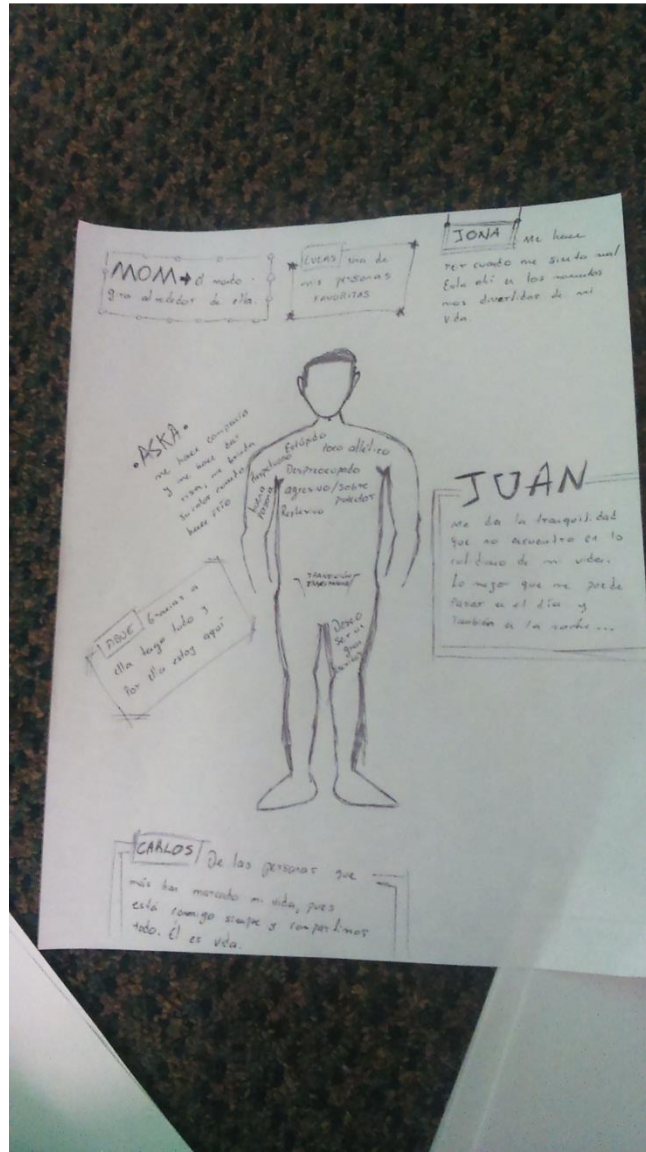 MOM → el mundo
gira alrededor de ella.
LUCAS una de
mis personas
FAVORITAS
JONA Me hace
reir cuando me siento mal
Esta ahí en los momentos
mas divertidos de mi
vida.
•ASKA•
me hace compañia
y me hace dar
risa, me brinda
su calor cuando
hace frío
Estúpido
poco atlético
Respetuoso
Despreocupado
buena
persona
agresivo/sobre
protector
Reflexivo
JUAN
me da la tranquilidad
que no encuentro en lo
cotidiano de mi vida.
Lo mejor que me puede
pasar en el día y
también en la noche...
TRANSICIÓN/
Deseo
ser un
gran
ABUE Gracias a
ella tengo todo y
Por ella estoy aquí
CARLOS De las personas que
más han marcado mi vida, pues
está conmigo siempre y compartimos
todo. Él es vida.